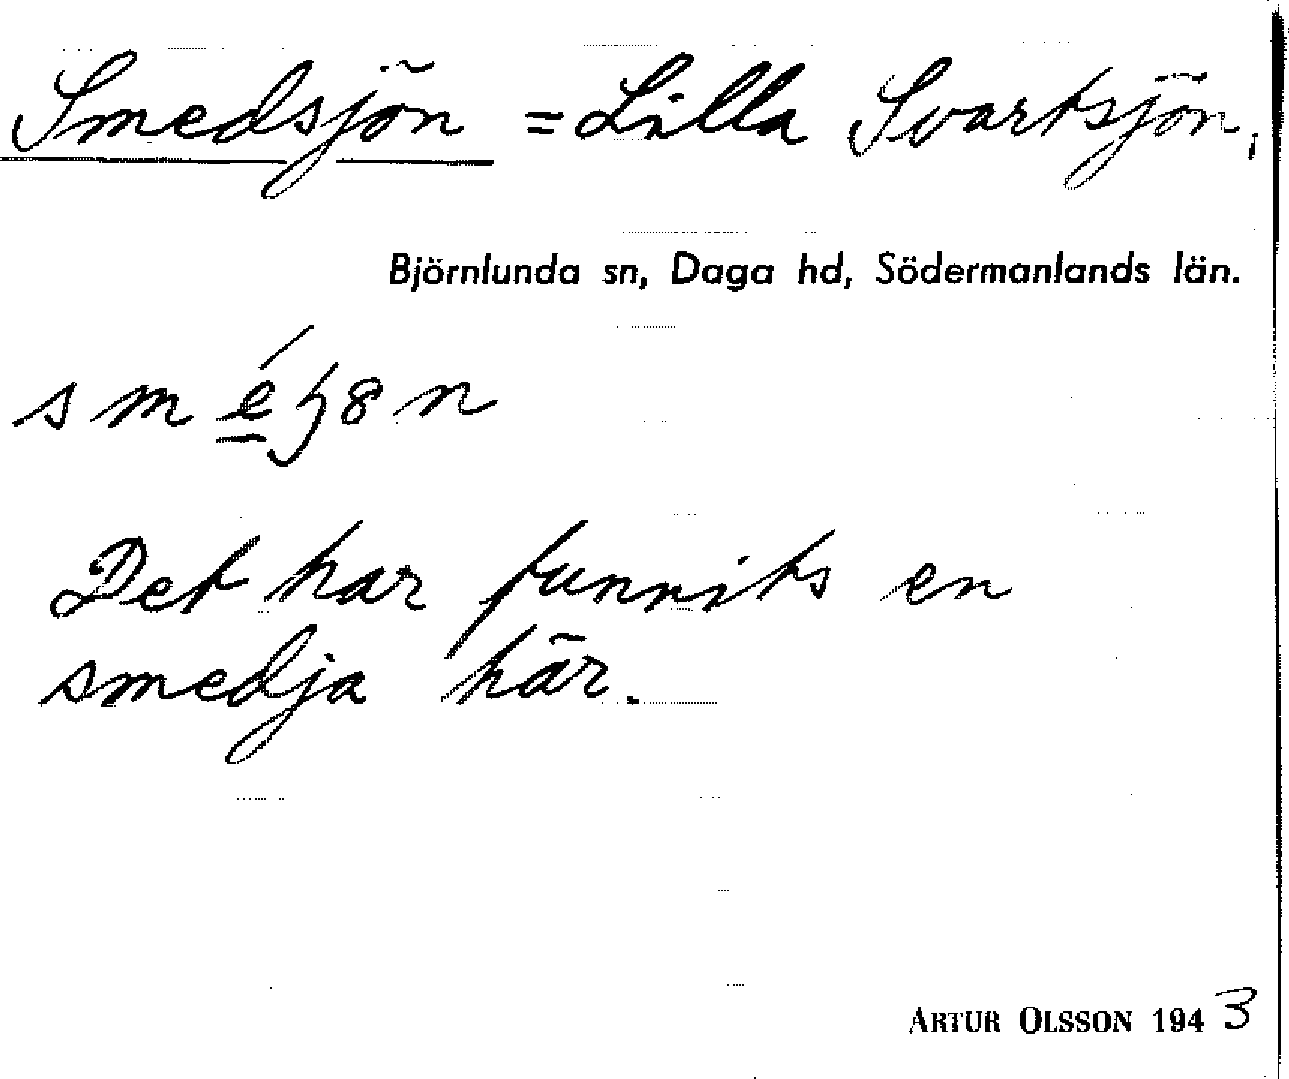 Smedsjön = Lilla Svartsjön,
Björnlunda sn, Daga hd, Södermanlands län.
Det har funnits en
smedja här.
ARTUR OLSSON 1943